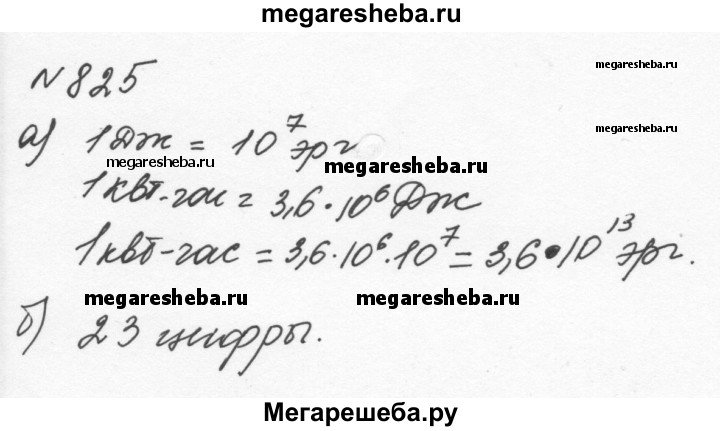 megaresheba.ru
№ 825
megaresheba.ru
а) 1 Дж = 10⁷ эрг
megaresheba.ru
megaresheba.ru
megaresheba.ru
1 квт-час = 3,6 · 10⁶ Дж
1 квт-час = 3,6 · 10⁶ · 10⁷ = 3,6 · 10¹³ эрг.
megaresheba.ru
megaresheba.ru
б) 23 цифры.
Мегарешеба.ру